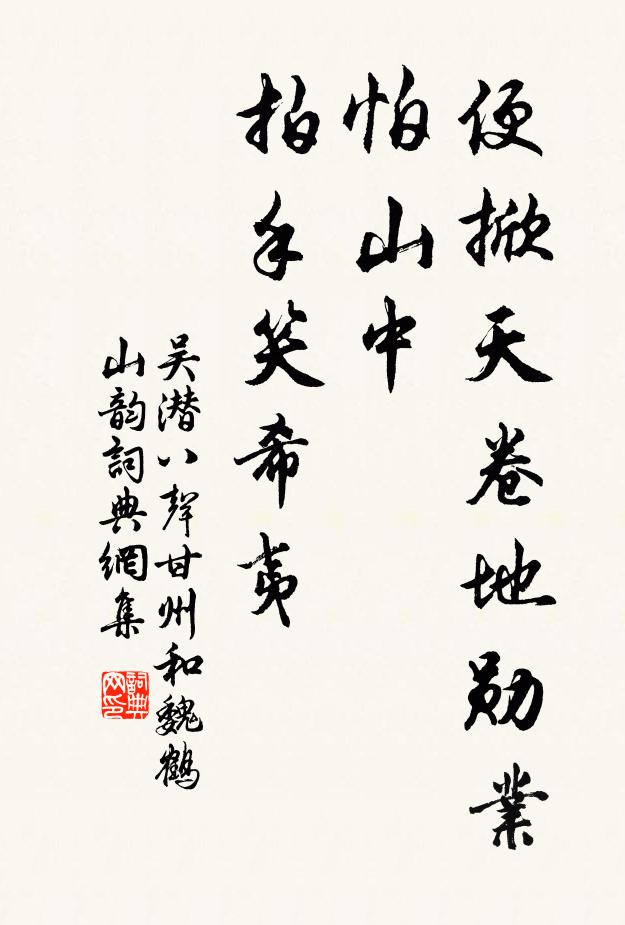 便掀天卷地勋業
怕山中
拍手笑希夷
吴潜八聲甘州和魏鶴
山韵詞典網集
詞典
网印